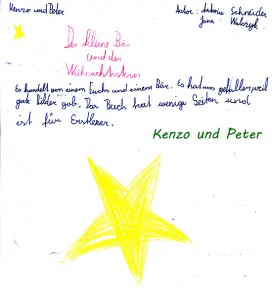 Kenzo und Peter
Autor: Antonie Schneider
Jana Walczyk
Der kleine Bär
und der
Weihnachtsstern
Es handelt von einem Fuchs und einem Bär. Es hat uns gefallen, weil
gute Bilder gab. Das Buch hat wenige Seiten und
ist für Erstleser.
Kenzo und Peter